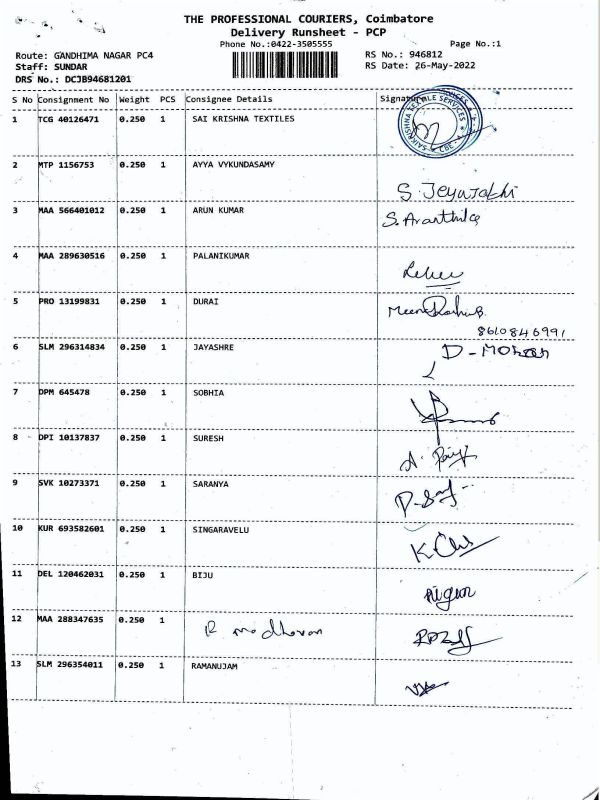 THE PROFESSIONAL COURIERS, Coimbatore
Delivery Runsheet - PCP
Phone No.:0422-3505555 Page No.:1
Route: GANDHIMA NAGAR PC4 RS No.: 946812
Staff: SUNDAR RS Date: 26-May-2022
DRS No.: DCJB94681201
S No Consignment No Weight PCS Consignee Details Signature
1 TCG 40126471 0.250 1 SAI KRISHNA TEXTILES
2 MTP 1156753 0.250 1 AYYA VYKUNDASAMY
3 MAA 566401012 0.250 1 ARUN KUMAR
4 MAA 289630516 0.250 1 PALANIKUMAR
5 PRO 13199831 0.250 1 DURAI
8610846991
6 SLM 296314834 0.250 1 JAYASHRE
7 DPM 645478 0.250 1 SOBHIA
8 DPI 10137837 0.250 1 SURESH
9 SVK 10273371 0.250 1 SARANYA
10 KUR 693582601 0.250 1 SINGARAVELU
11 DEL 120462031 0.250 1 BIJU
12 MAA 288347635 0.250 1 R madhavan
13 SLM 296354011 0.250 1 RAMANUJAM